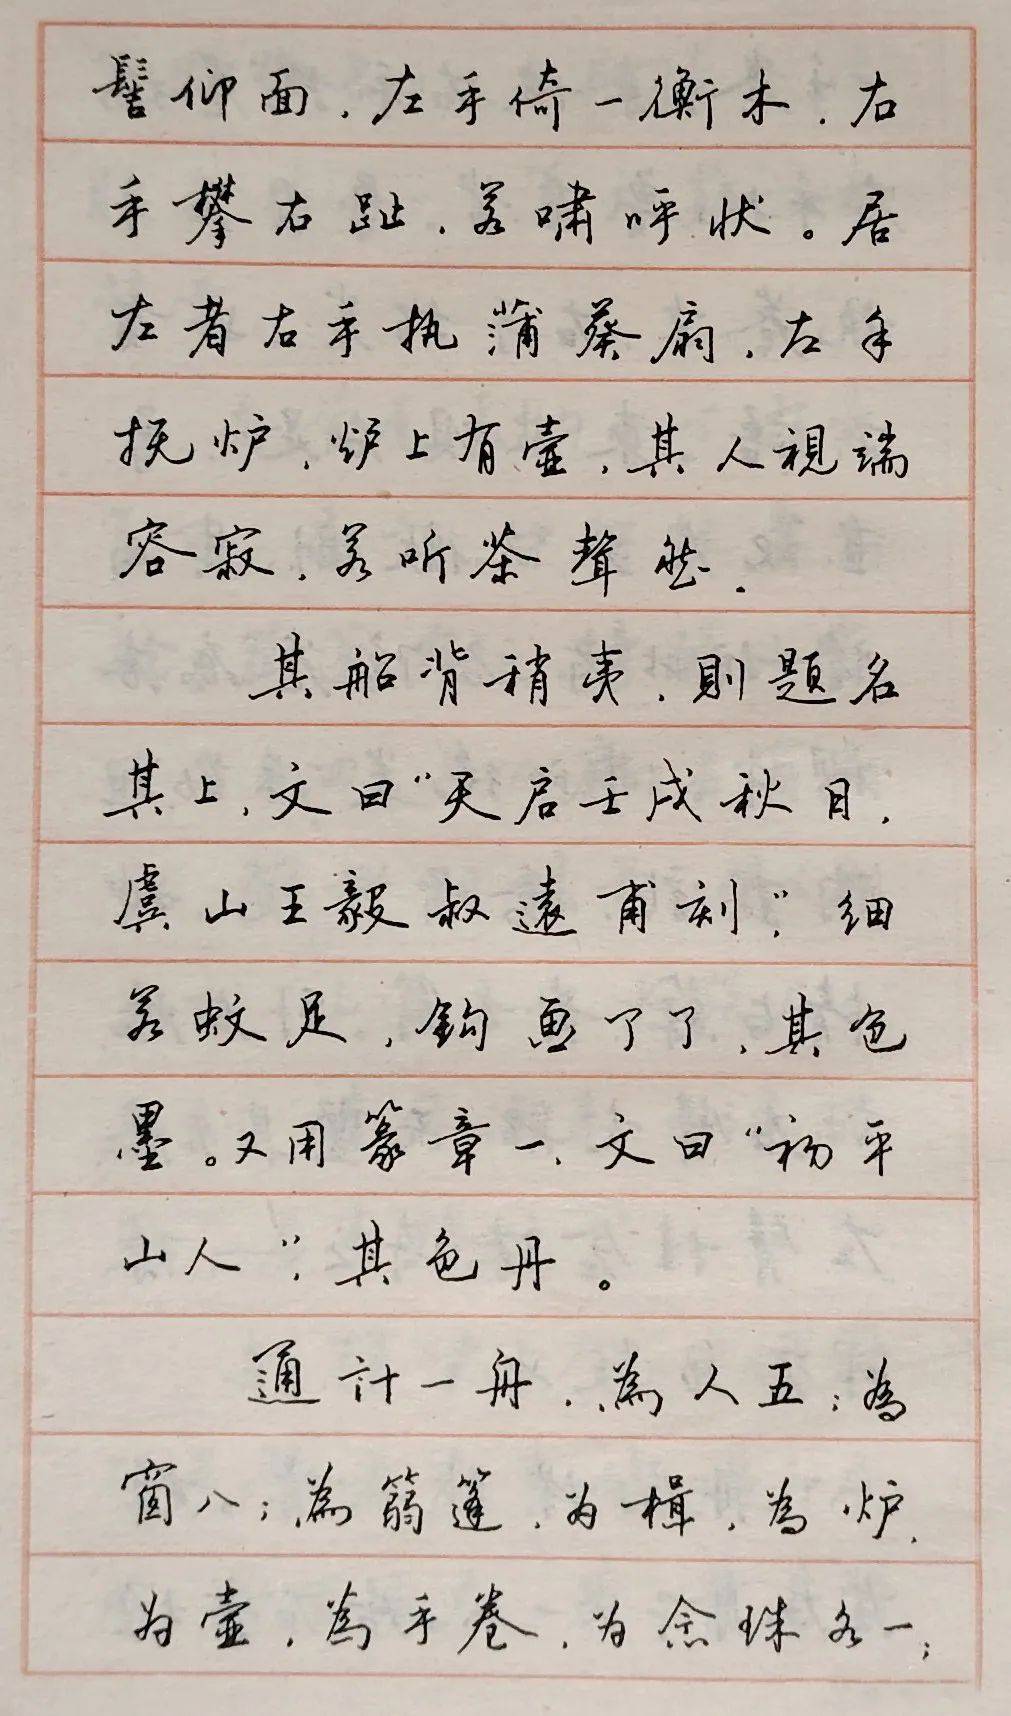 髻仰面，左手倚一衡木，右
手攀右趾，若啸呼状。居
左者右手执蒲葵扇，左手
抚炉，炉上有壶，其人視端
容寂，若听茶聲然。
其船背稍夷，則題名
其上，文曰“天启壬戌秋日，
虞山王毅叔遠甫刻”，细
若蚊足，鈎画了了，其色
墨。又用篆章一，文曰“初平
山人”，其色丹。
通計一舟，為人五；為
窗八；為篛篷，为楫，為炉，
为壶，為手卷，为念珠各一；